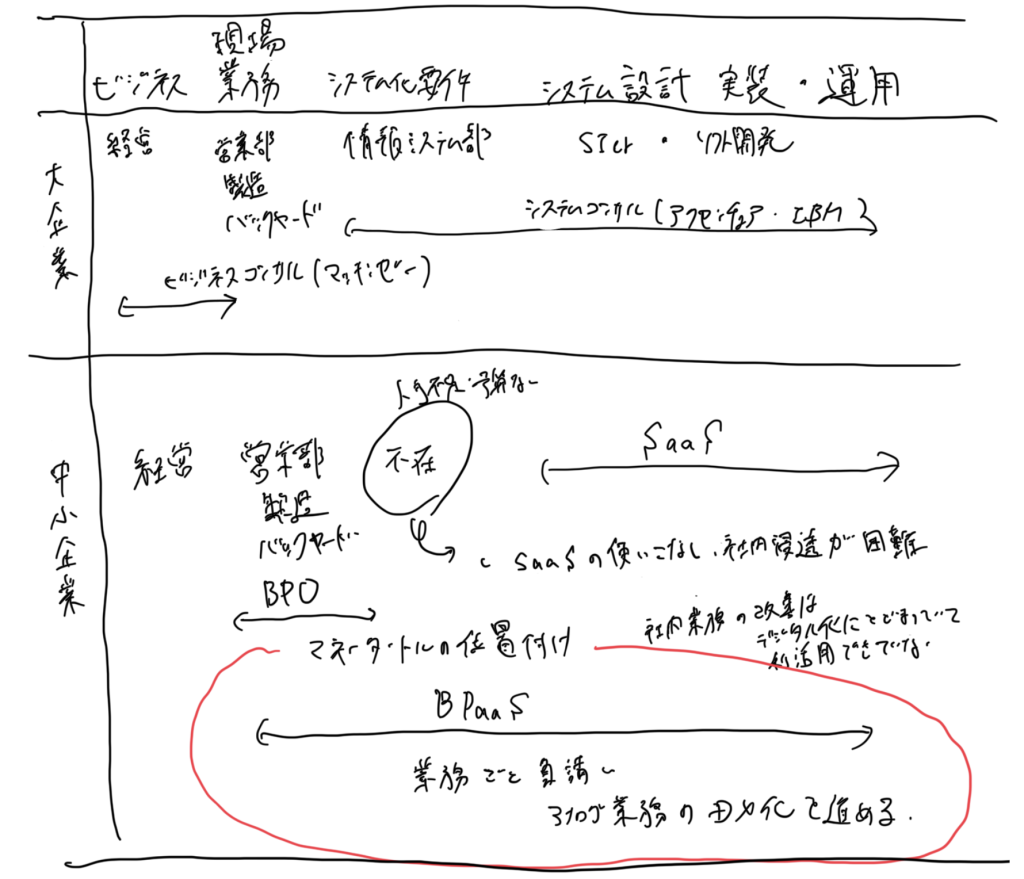 現場
ビジネス 業務 システム化要件 システム設計 実装・運用
大企業
経営 営業部 情報システム部 SIer ・ ソフト開発
製造
バックヤード システムコンサル(アクセンチュア・IBM)
ビジネスコンサル(マッキンゼー)
中小企業
人手不足・予算ない
経営 営業部 不在 SaaS
製造
バックヤード SaaSの使いこなし、社内浸透が困難
BPO
社内業務の改善は
デジタル化にとどまっていて
利活用できていない
マネータートルの位置付け
BPaaS
業務ごと負請い
アナログ業務のDX化を進める.